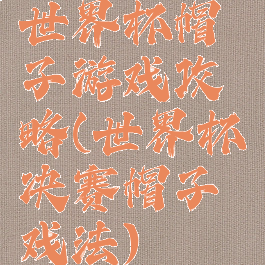 世界杯帽
子游戏攻
略(世界杯
决赛帽子
戏法)